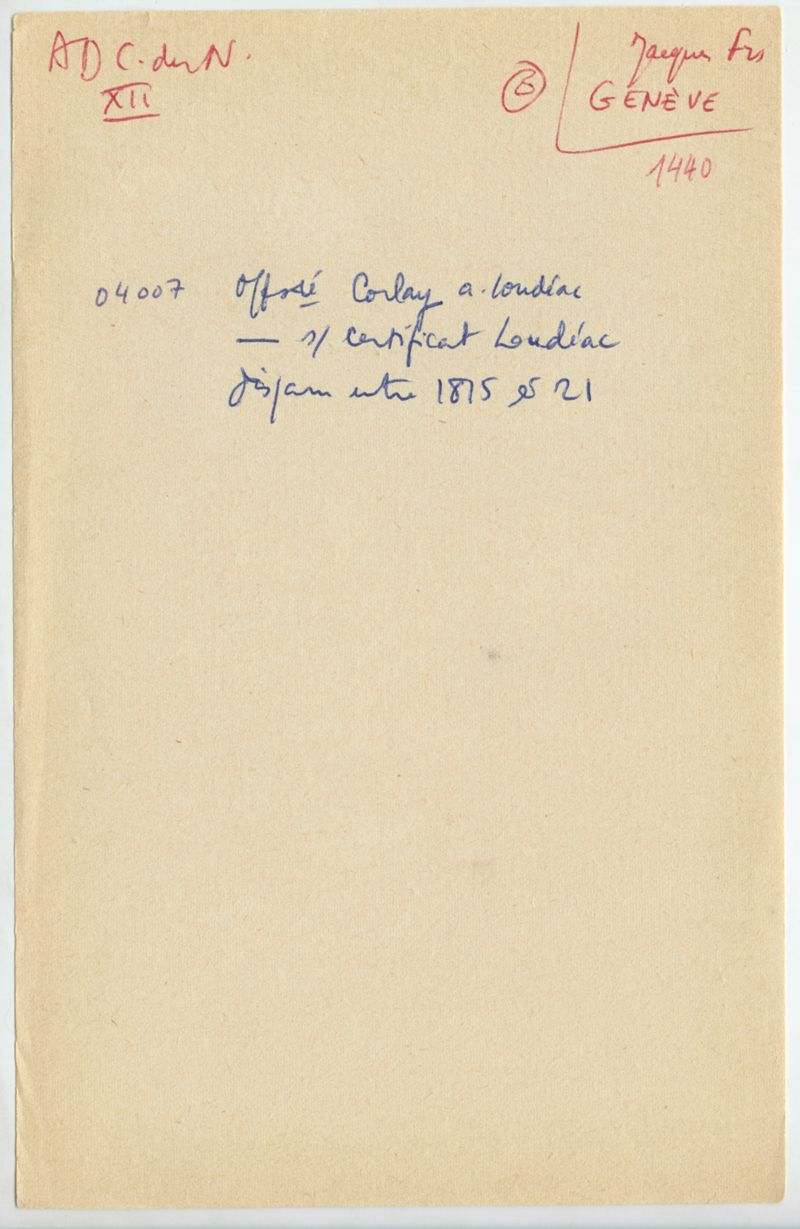 AD C. du N.
XII
6
Jacques Frs
GENÈVE
1440
04007 Corlay a. Loudéac
— s/ certificat Loudéac
entre 1815 et 21